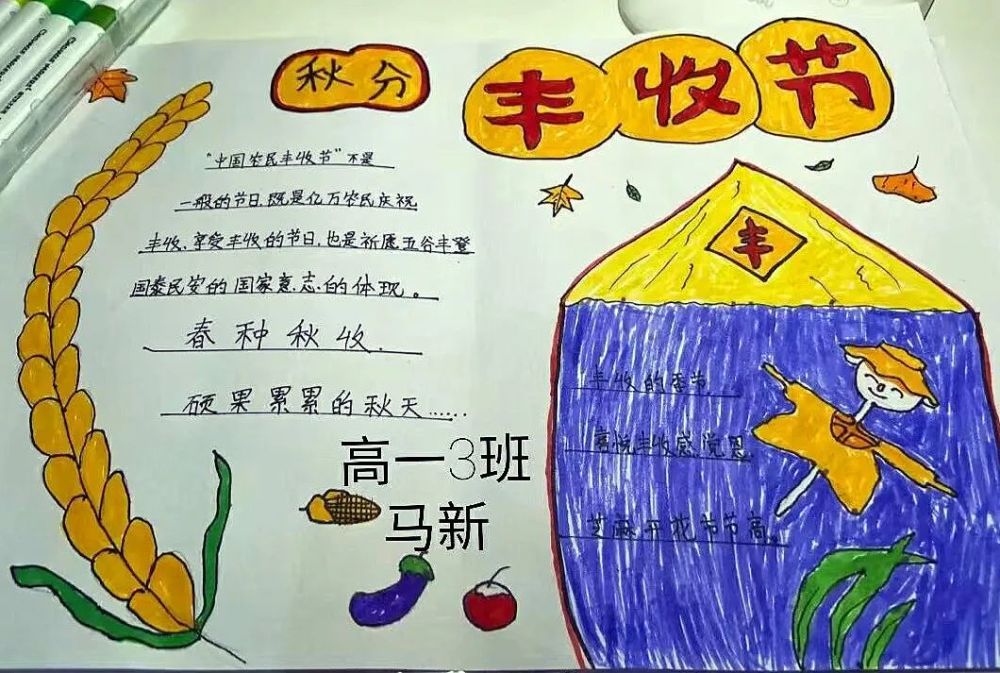 秋分
丰收节
"中国农民丰收节"不是
一般的节日,既是亿万农民庆祝
丰收、享受丰收的节日,也是祈愿五谷丰登
国泰民安的国家意志的体现。
春种秋收.
硕果累累的秋天......
高一3班
马新
丰
丰收的季节
喜悦丰收感觉恩
芝麻开花节节高。